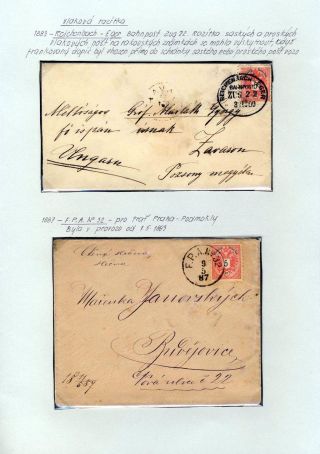 Vlaková razítka
1883 - Reichenbach - Eger bahnpost zug 22. Razítka saských a pruských
vlakových pošt na rakouských známkách se mohla vyskytnout, když
frankovaný dopis byl vhozen přímo do schránky saského nebo pruského pošt. vozu
REICHENBACH-EGER
BAHNPOST
ZUG 22
Méltóságos Gróf
főispán úrnak
Ungarn
Zavaron
Pozsony megye
1887 - F.P.A. Nº 32 - pro trať Praha-Podmokly
Byla v provozu od 1.5.1869
F.P.A. Nº 32
9
5
87
5
Mařenka Janovských
Budějovice
Nová ulice č 22